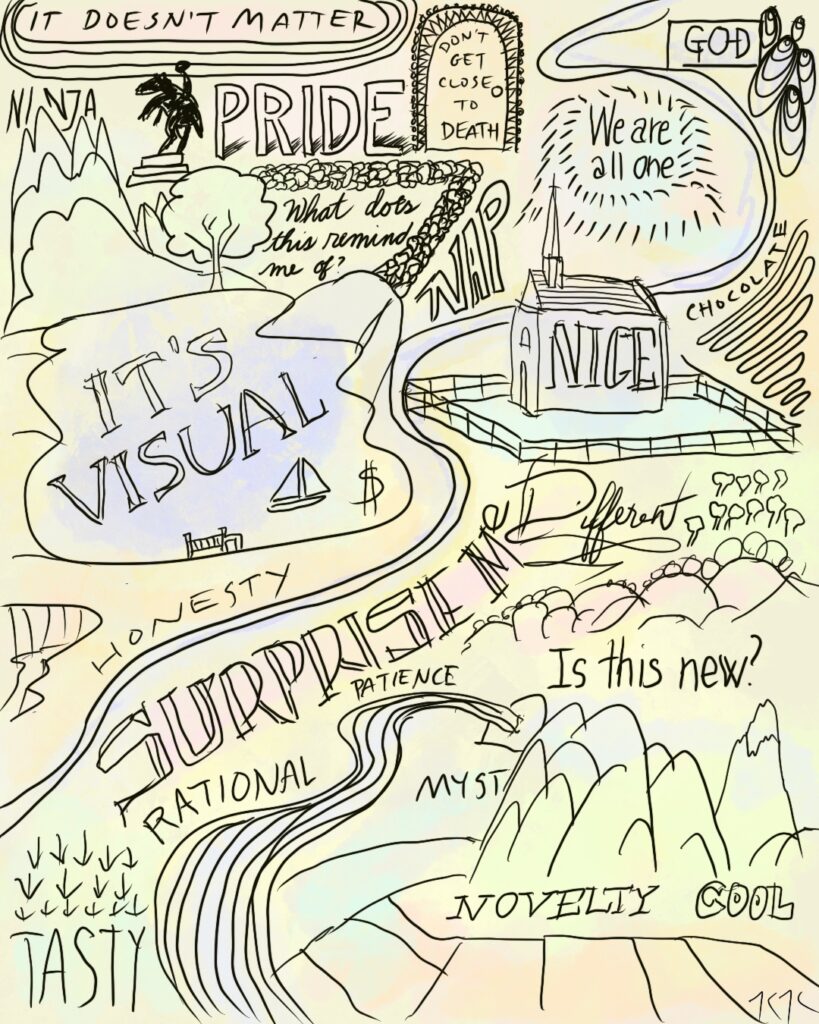 IT DOESN'T MATTER
DON'T
GET
CLOSE
TO
DEATH
GOD
NINJA
PRIDE
We are
all one
What does
this remind
me of?
NAP
CHOCOLATE
NICE
IT'S
VISUAL
$
Different
HONESTY
SURPRISE ME
PATIENCE
Is this new?
RATIONAL
MYST
NOVELTY
COOL
TASTY